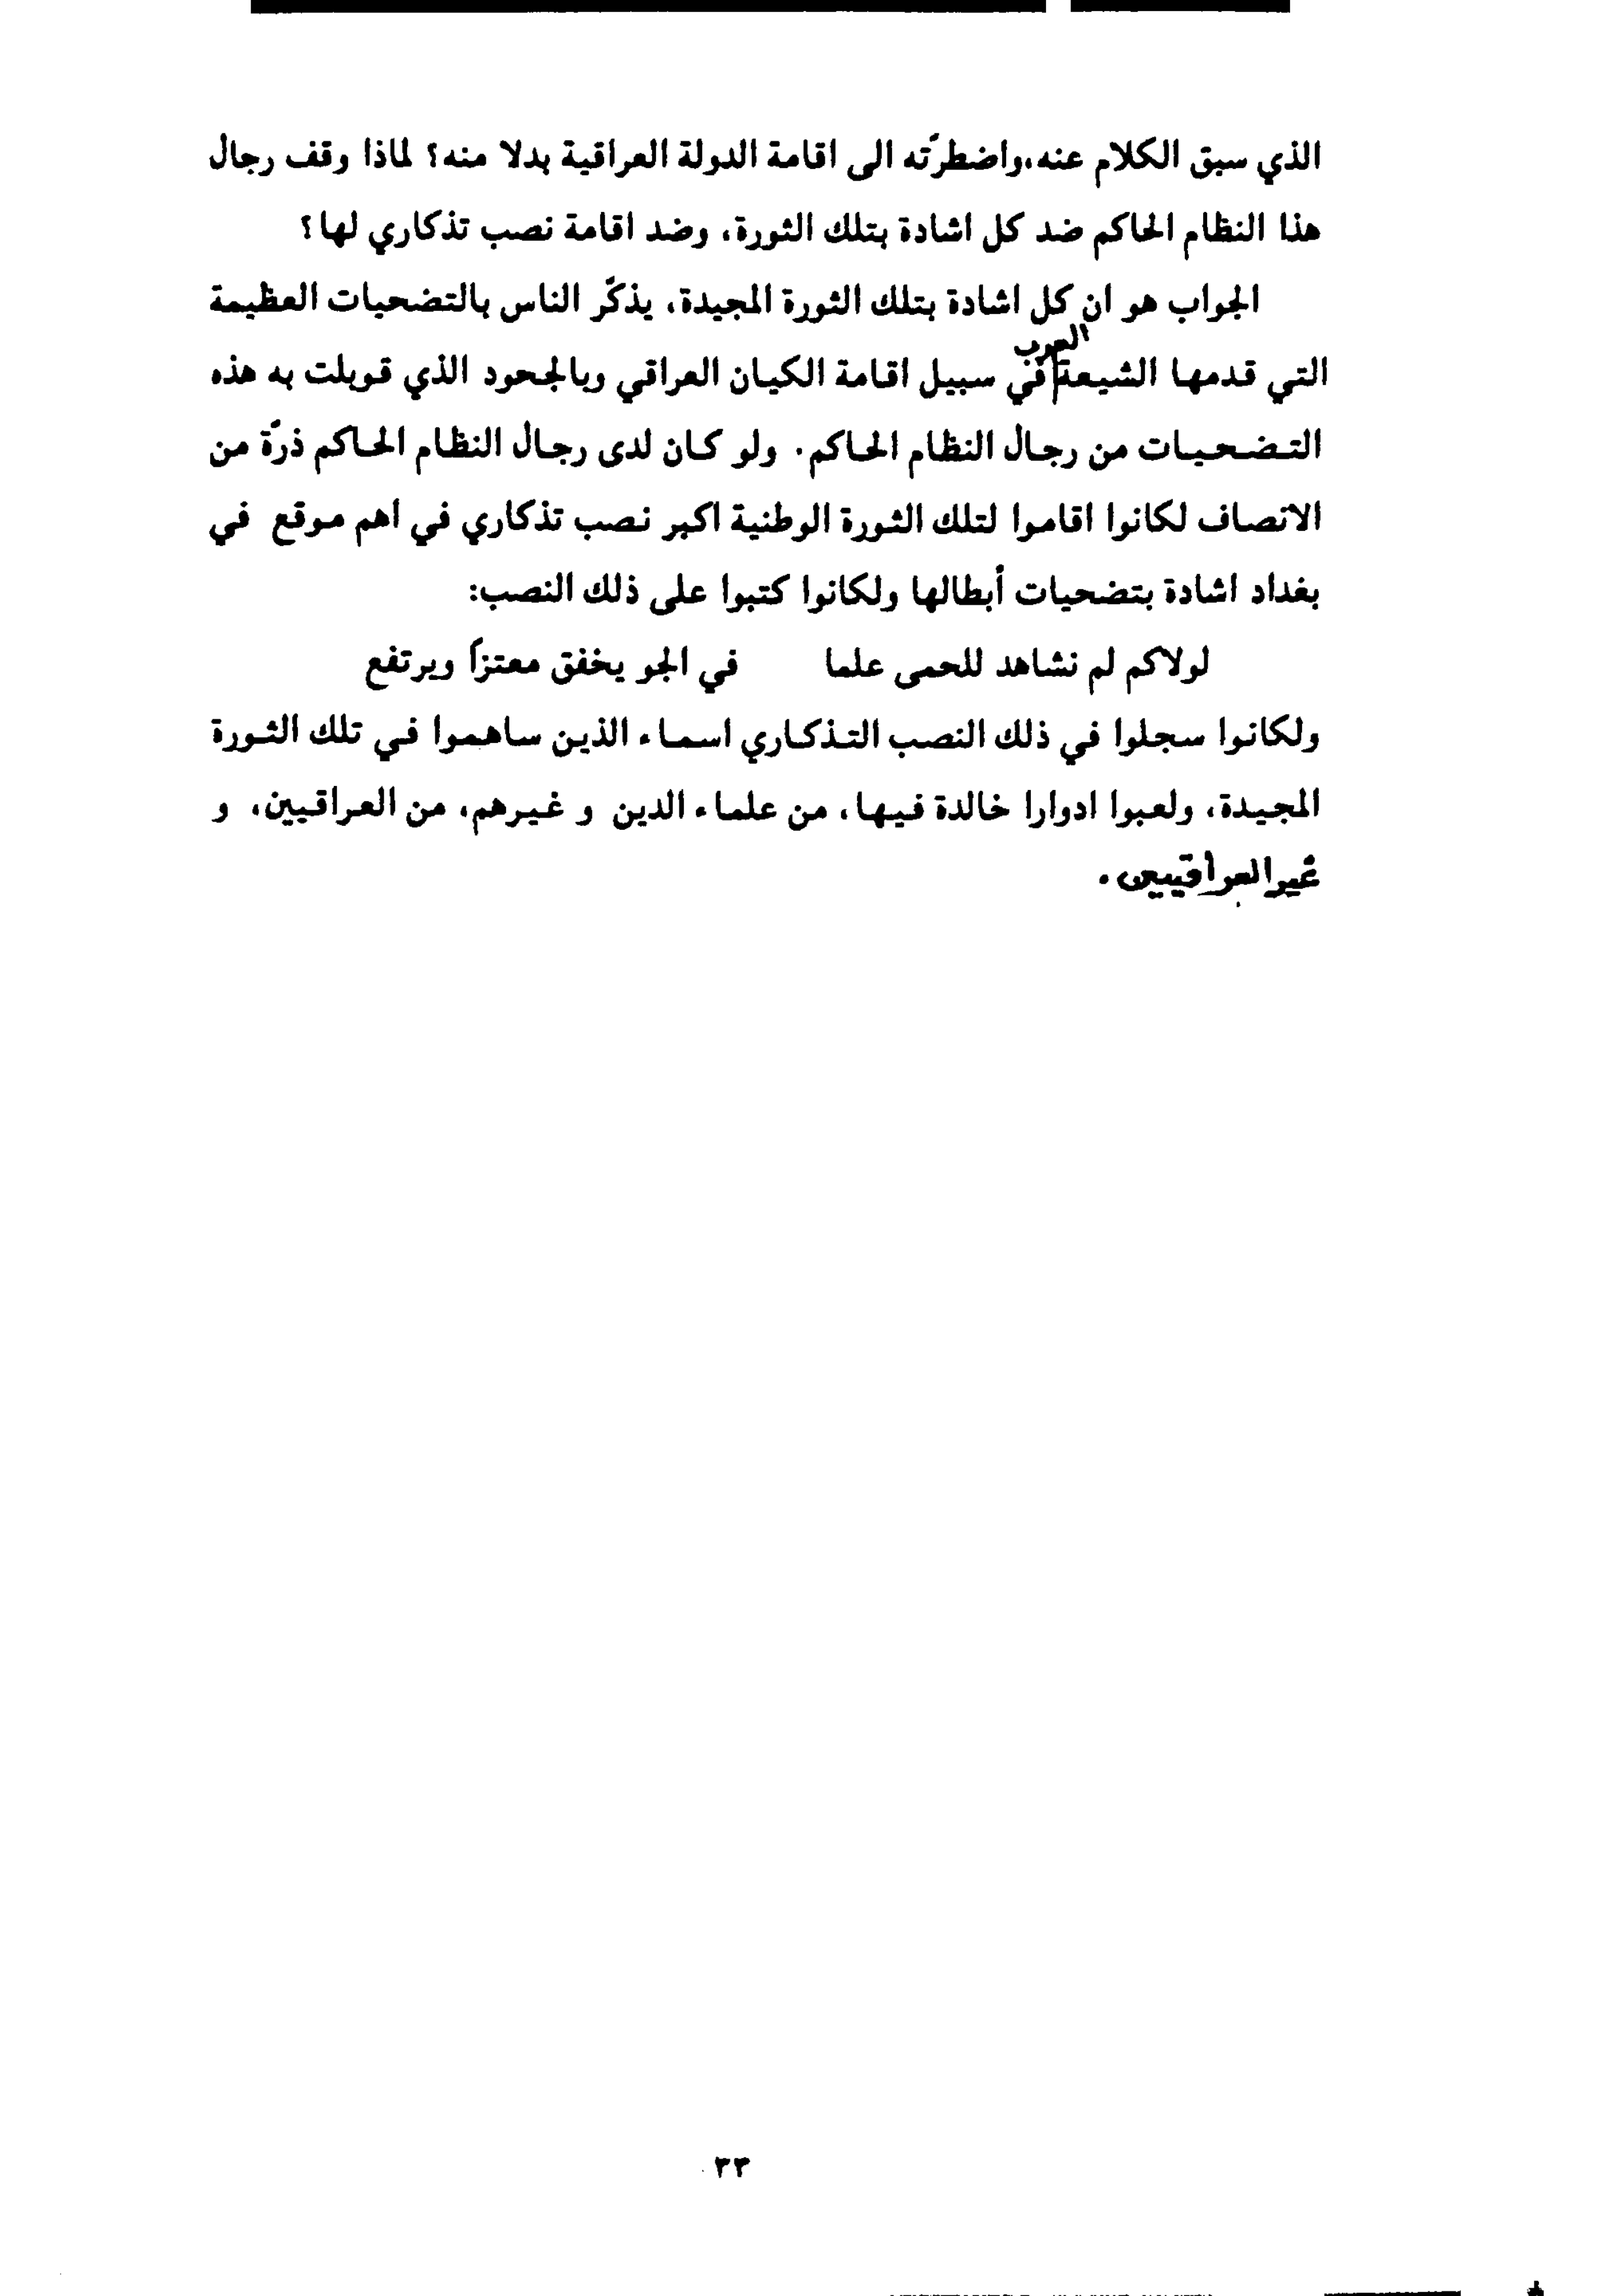 الذي سبق الكلام عنه،واضطرّته الى اقامة الدولة العراقية بدلا منه؟ لماذا وقف رجال
هذا النظام الحاكم ضد كل اشادة بتلك الثورة، وضد اقامة نصب تذكاري لها؟
الجواب هو ان كل اشادة بتلك الثورة المجيدة، يذكّر الناس بالتضحيات العظيمة
العرب
التي قدمها الشيعة في سبيل اقامة الكيان العراقي وبالجحود الذي قوبلت به هذه
التضحيات من رجال النظام الحاكم. ولو كان لدى رجال النظام الحاكم ذرّة من
الانصاف لكانوا اقاموا لتلك الثورة الوطنية اكبر نصب تذكاري في اهم موقع في
بغداد اشادة بتضحيات أبطالها ولكانوا كتبوا على ذلك النصب:
لولاكم لم نشاهد للحمى علما في الجو يخفق معتزاً ويرتفع
ولكانوا سجلوا في ذلك النصب التذكاري اسماء الذين ساهموا في تلك الثورة
المجيدة، ولعبوا ادوارا خالدة فيها، من علماء الدين و غيرهم، من العراقيين، و
غير العراقيين.
٣٣